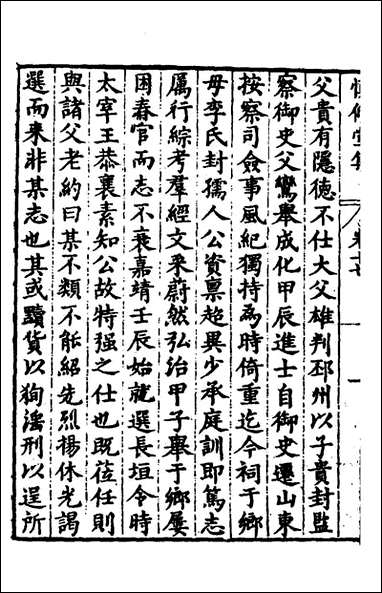 慎修堂集 卷十七 一
父貴有隱德不仕大父雄判邳州以子貴封監
察御史父鸞舉成化甲辰進士自御史遷山東
按察司僉事風紀獨持為時倚重迄今祠于鄉
母李氏封孺人公資禀超異少承庭訓即篤志
厲行綜考羣經文采蔚然弘治甲子舉于鄉屢
困春官而志不衰嘉靖壬辰始就選長垣令時
太宰王恭襄素知公故特强之仕也既蒞任則
與諸父老約曰某不類不能紹先烈揚休光謁
選而来非某志也其或黷貨以狥淫刑以逞所